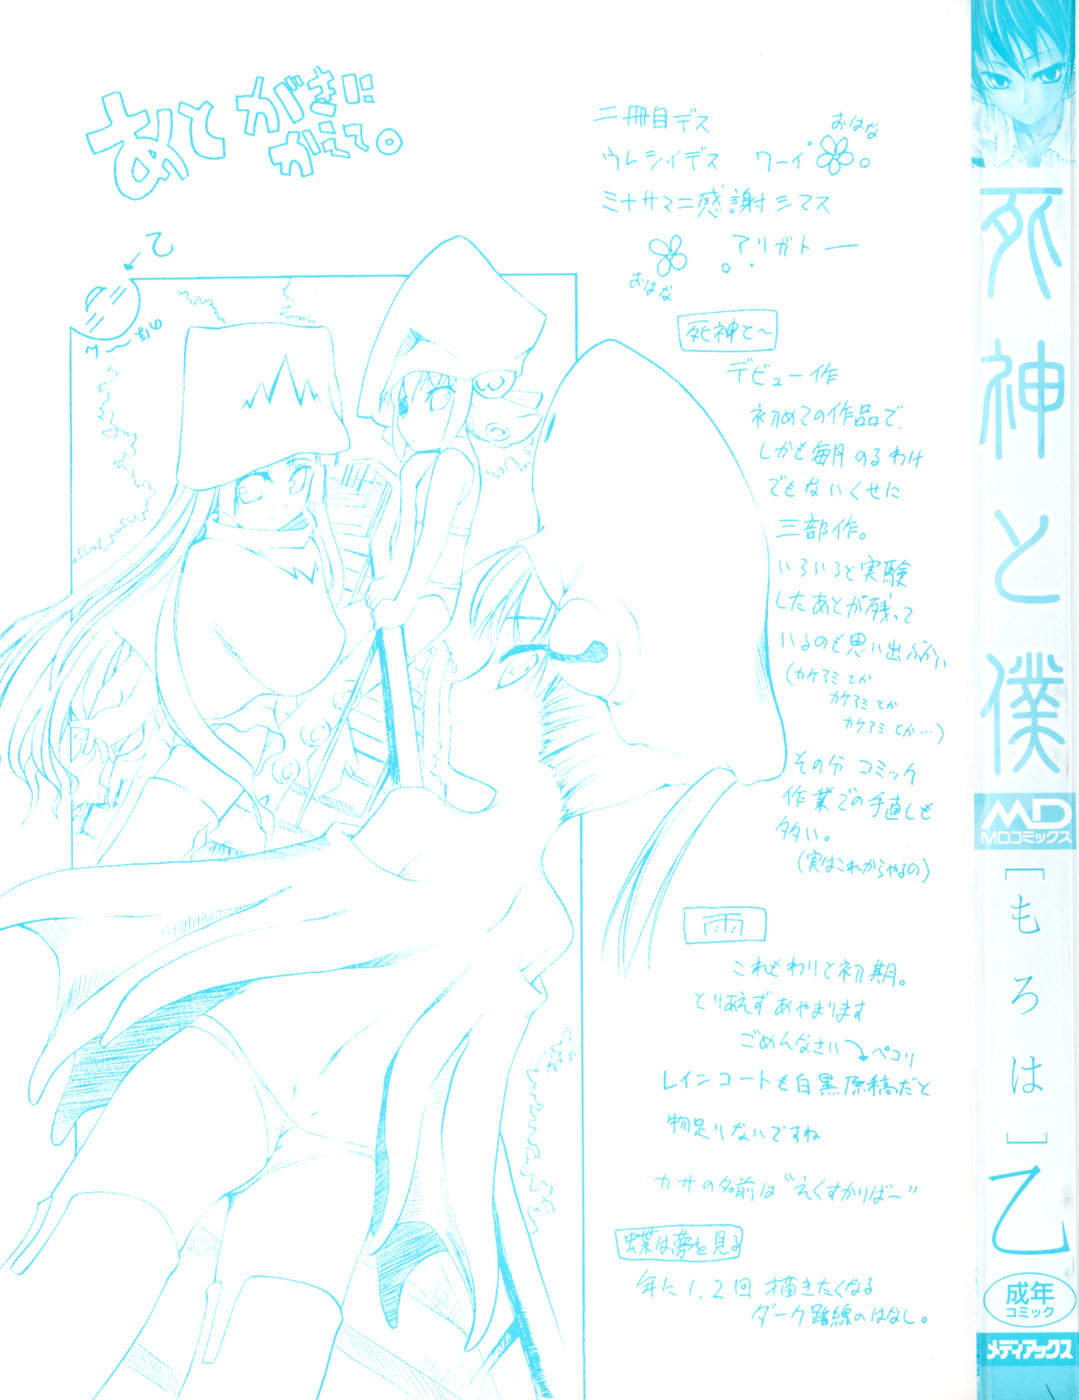 あとがきに
かえて。
二冊目デス
ウレシイデス ワーイ 。
おはな
ミナサマニ感謝シマス
アリガトー
おはな
乙
死神と〜
デビュー作
初めての作品で、
しかも毎月のるわけ
でもないくせに
三部作。
いろいろと実験
したあとが残って
いるのも思い出ぶかい
(カケアミとか
カケアミとか
カケアミとか…)
その分コミック
作業での手直しも
多い。
(実はこれからやるの)
雨
これもわりと初期。
とりあえずあやまります
ごめんなさい ペコリ
レインコートも白黒原稿だと
物足りないですね
カサの名前は"えくすかりばー"
蝶は夢を見る
年に1、2回 描きたくなる
ダーク路線のはなし。
死神と僕
MD
MDコミックス
[もろは]
乙
成年
コミック
メディアックス